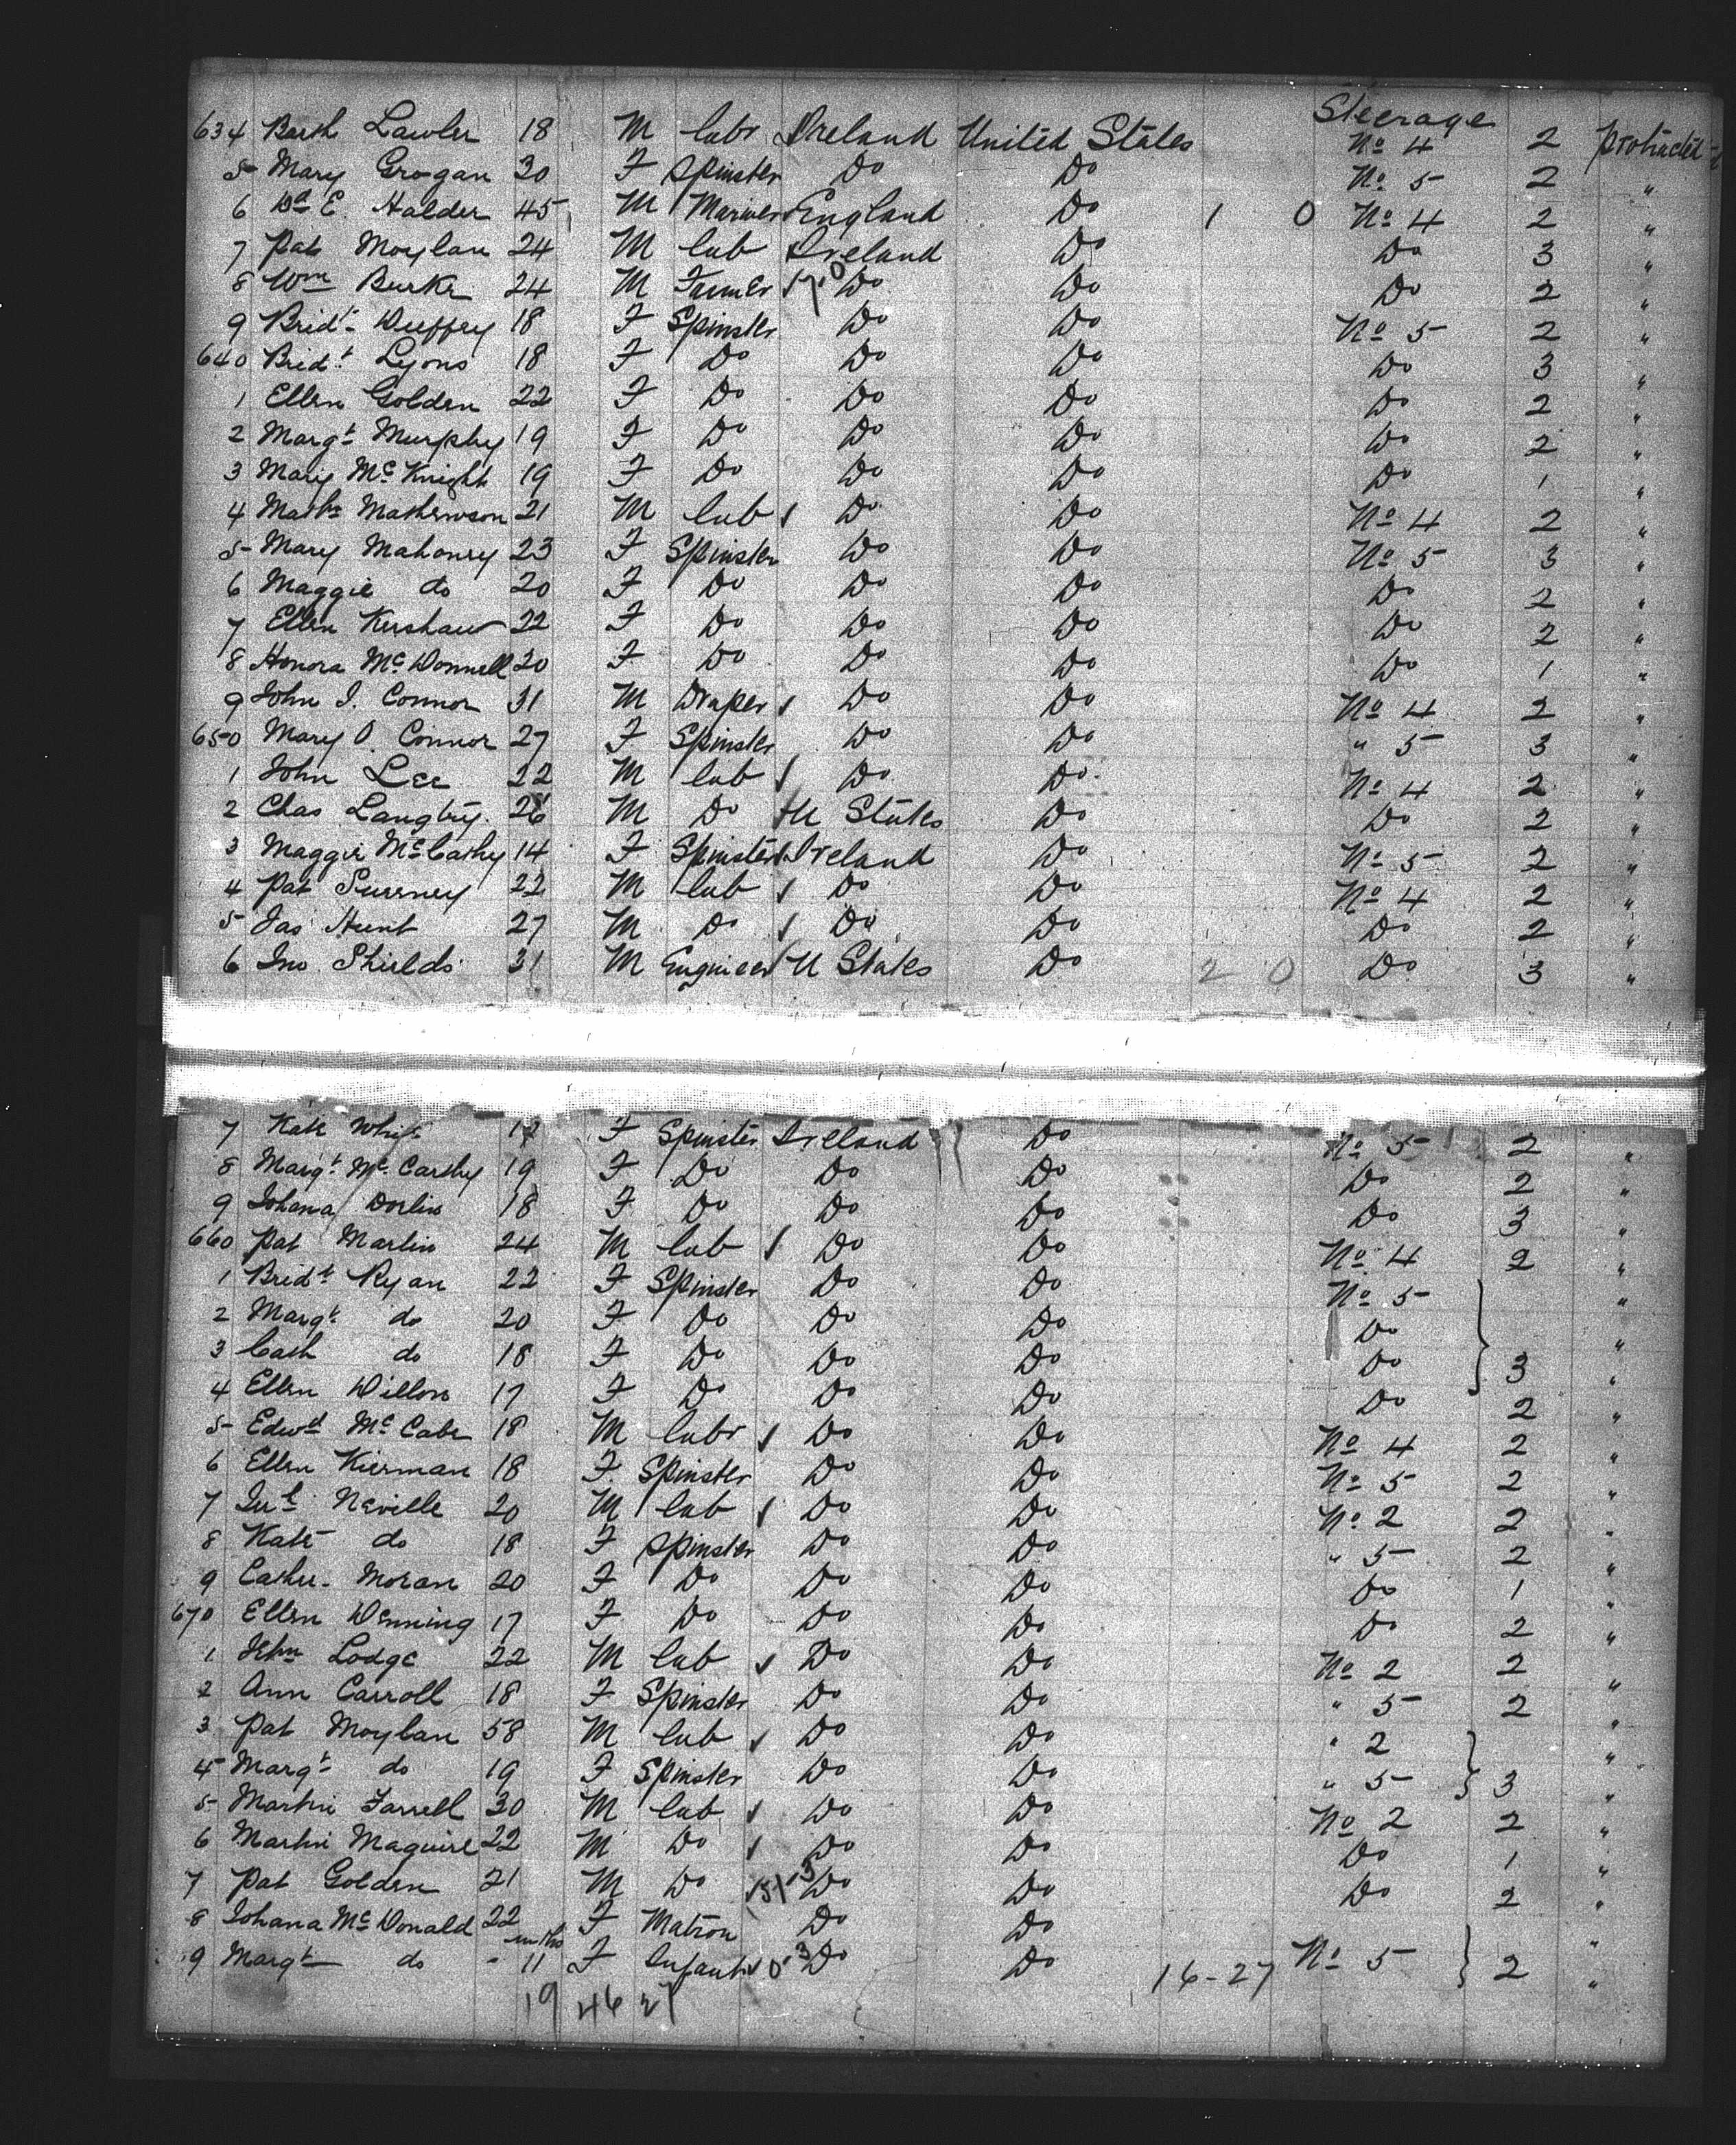 Steerage
634 Barth Lawler 18 M labr Ireland United States No 4 2 protracted
5 Mary Grogan 30 F Spinster Do Do No 5 2 "
6 E. Halder 45 M Mariner England Do 1 0 No 4 2 "
7 Pat Moylan 24 M lab Ireland Do Do 3 "
8 Wm Burke 24 M Farmer Do Do Do 2 "
9 Bridt Duffey 18 F Spinster Do Do No 5 2 "
640 Bridt Lyons 18 F Do Do Do Do 3 "
1 Ellen Golden 22 F Do Do Do Do 2 "
2 Margt Murphy 19 F Do Do Do Do 2 "
3 Mary McKnight 19 F Do Do Do Do 1 "
4 Mathewson 21 M lab Do Do No 4 2 "
5 Mary Mahoney 23 F Spinster Do Do No 5 3 "
6 Maggie do 20 F Do Do Do Do 2 "
7 Ellen Kershaw 22 F Do Do Do Do 2 "
8 Honora McDonnell 20 F Do Do Do Do 1 "
9 John J. Connor 31 M Draper Do Do No 4 2 "
650 Mary O. Connor 27 F Spinster Do Do " 5 3 "
1 John Lee 22 M lab Do Do No 4 2 "
2 Chas Langtry 26 M Do U States Do Do 2 "
3 Maggie McCathy 14 F Spinster Ireland Do No 5 2 "
4 Pat Sweeney 22 M lab Do Do No 4 2 "
5 Jas Hunt 27 M Do Do Do Do 2 "
6 Jno. Shields 31 M Engineer U States Do 2 0 Do 3 "
7 Kate White 17 F Spinster Ireland Do No 5 2 "
8 Margt McCarthy 19 F Do Do Do Do 2 "
9 Johana 18 F Do Do Do Do 3 "
660 Pat Martin 24 M lab Do Do No 4 2 "
1 Bridt Ryan 22 F Spinster Do Do No 5 "
2 Margt do 20 F Do Do Do Do "
3 Cath do 18 F Do Do Do Do 3 "
4 Ellen Dillon 17 F Do Do Do Do 2 "
5 Edwd McCabe 18 M labr Do Do No 4 2 "
6 Ellen Kierman 18 F Spinster Do Do No 5 2 "
7 Neville 20 M lab Do Do No 2 2 "
8 Kate do 18 F Spinster Do Do " 5 2 "
9 Cather. Moran 20 F Do Do Do Do 1 "
670 Ellen Denning 17 F Do Do Do Do 2 "
1 John Lodge 22 M lab Do Do No 2 2 "
2 Ann Carroll 18 F Spinster Do Do " 5 2 "
3 Pat Moylan 58 M lab Do Do " 2 "
4 Margt do 19 F Spinster Do Do " 5 3 "
5 Martin Farrell 30 M lab Do Do No 2 2 "
6 Martin Maguire 22 M Do Do Do Do 1 "
7 Pat Golden 21 M Do 51-3 Do Do Do 2 "
8 Johana McDonald 22 F Matron Do Do "
9 Margt do - 11 mths F Infant 0-3 Do Do 16-27 No 5 2 "
19 46 27